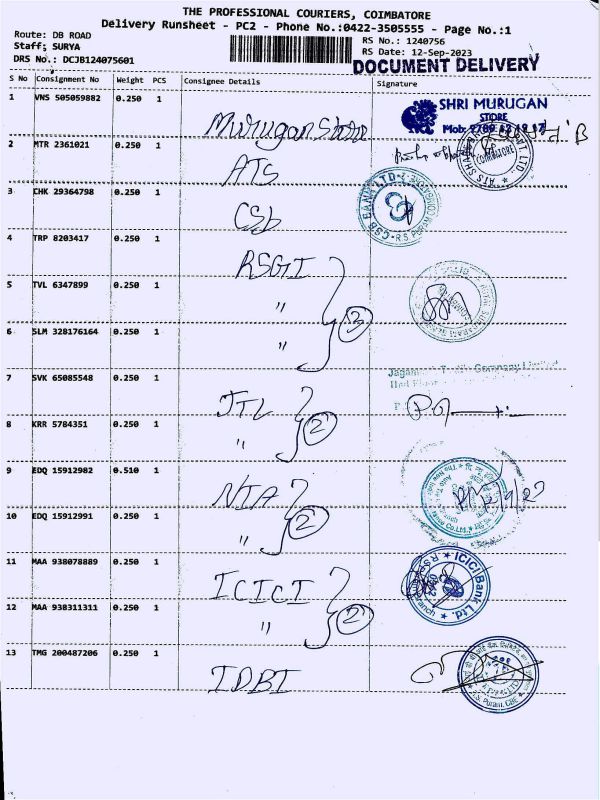 THE PROFESSIONAL COURIERS, COIMBATORE
Delivery Runsheet - PC2 - Phone No.:0422-3505555 - Page No.:1
Route: DB ROAD
Staff: SURYA
DRS No.: DCJB124075601
RS No.: 1240756
RS Date: 12-Sep-2023
DOCUMENT DELIVERY
S No Consignment No Weight PCS Consignee Details Signature
1 VNS 505059882 0.250 1 Murugan Store
SHRI MURUGAN
STORE
Mob:
2 MTR 2361021 0.250 1 ATS
COIMBATORE
3 CHK 29364798 0.250 1 CSb
CSB BANK LTD
R.S. PURAM
4 TRP 8203417 0.250 1 RSGI
5 TVL 6347899 0.250 1 "
6 SLM 328176164 0.250 1 " 3
7 SVK 65085548 0.250 1 JTL
8 KRR 5784351 0.250 1 " 2
9 EDQ 15912982 0.510 1 NIA
10 EDQ 15912991 0.250 1 " 2
11 MAA 938078889 0.250 1 ICICI
ICICI Bank Ltd.
12 MAA 938311311 0.250 1 " 2
13 TMG 200487206 0.250 1 IDBI
R.S. Puram, CBE